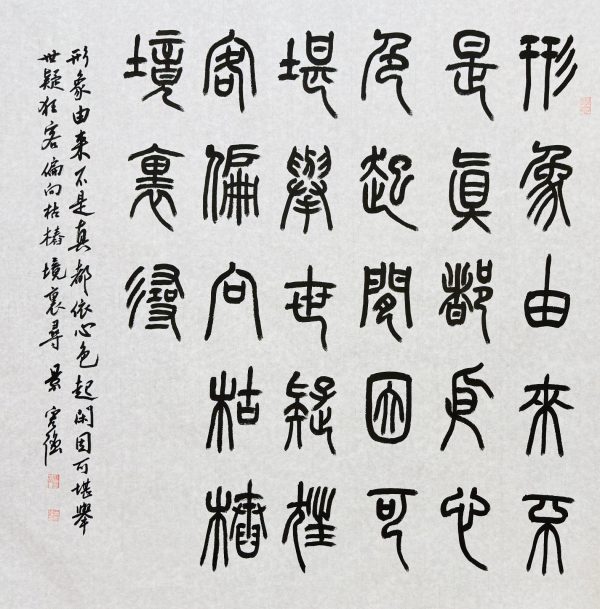 形象由來不
是眞都依心
色起閒因可
堪舉世疑狂
客偏向枯樁
境裏尋
形象由来不是真都依心色起閑因可堪舉
世疑狂客偏向枯樁境裏尋 景